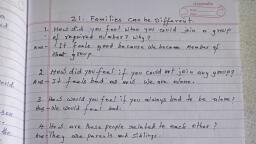 21. Families Can be Different
1. How did you feel when you could join a group
of required number? Why?
Ans- It feels good because we became member of
that group.
2. How did you feel if you could not join any group?
Ans- It feels bad as we are alone.
3. How would you feel if you always had to be alone?
Ans- We would feel bad.
4. How are these people related to each other?
Ans- They are parents and siblings.